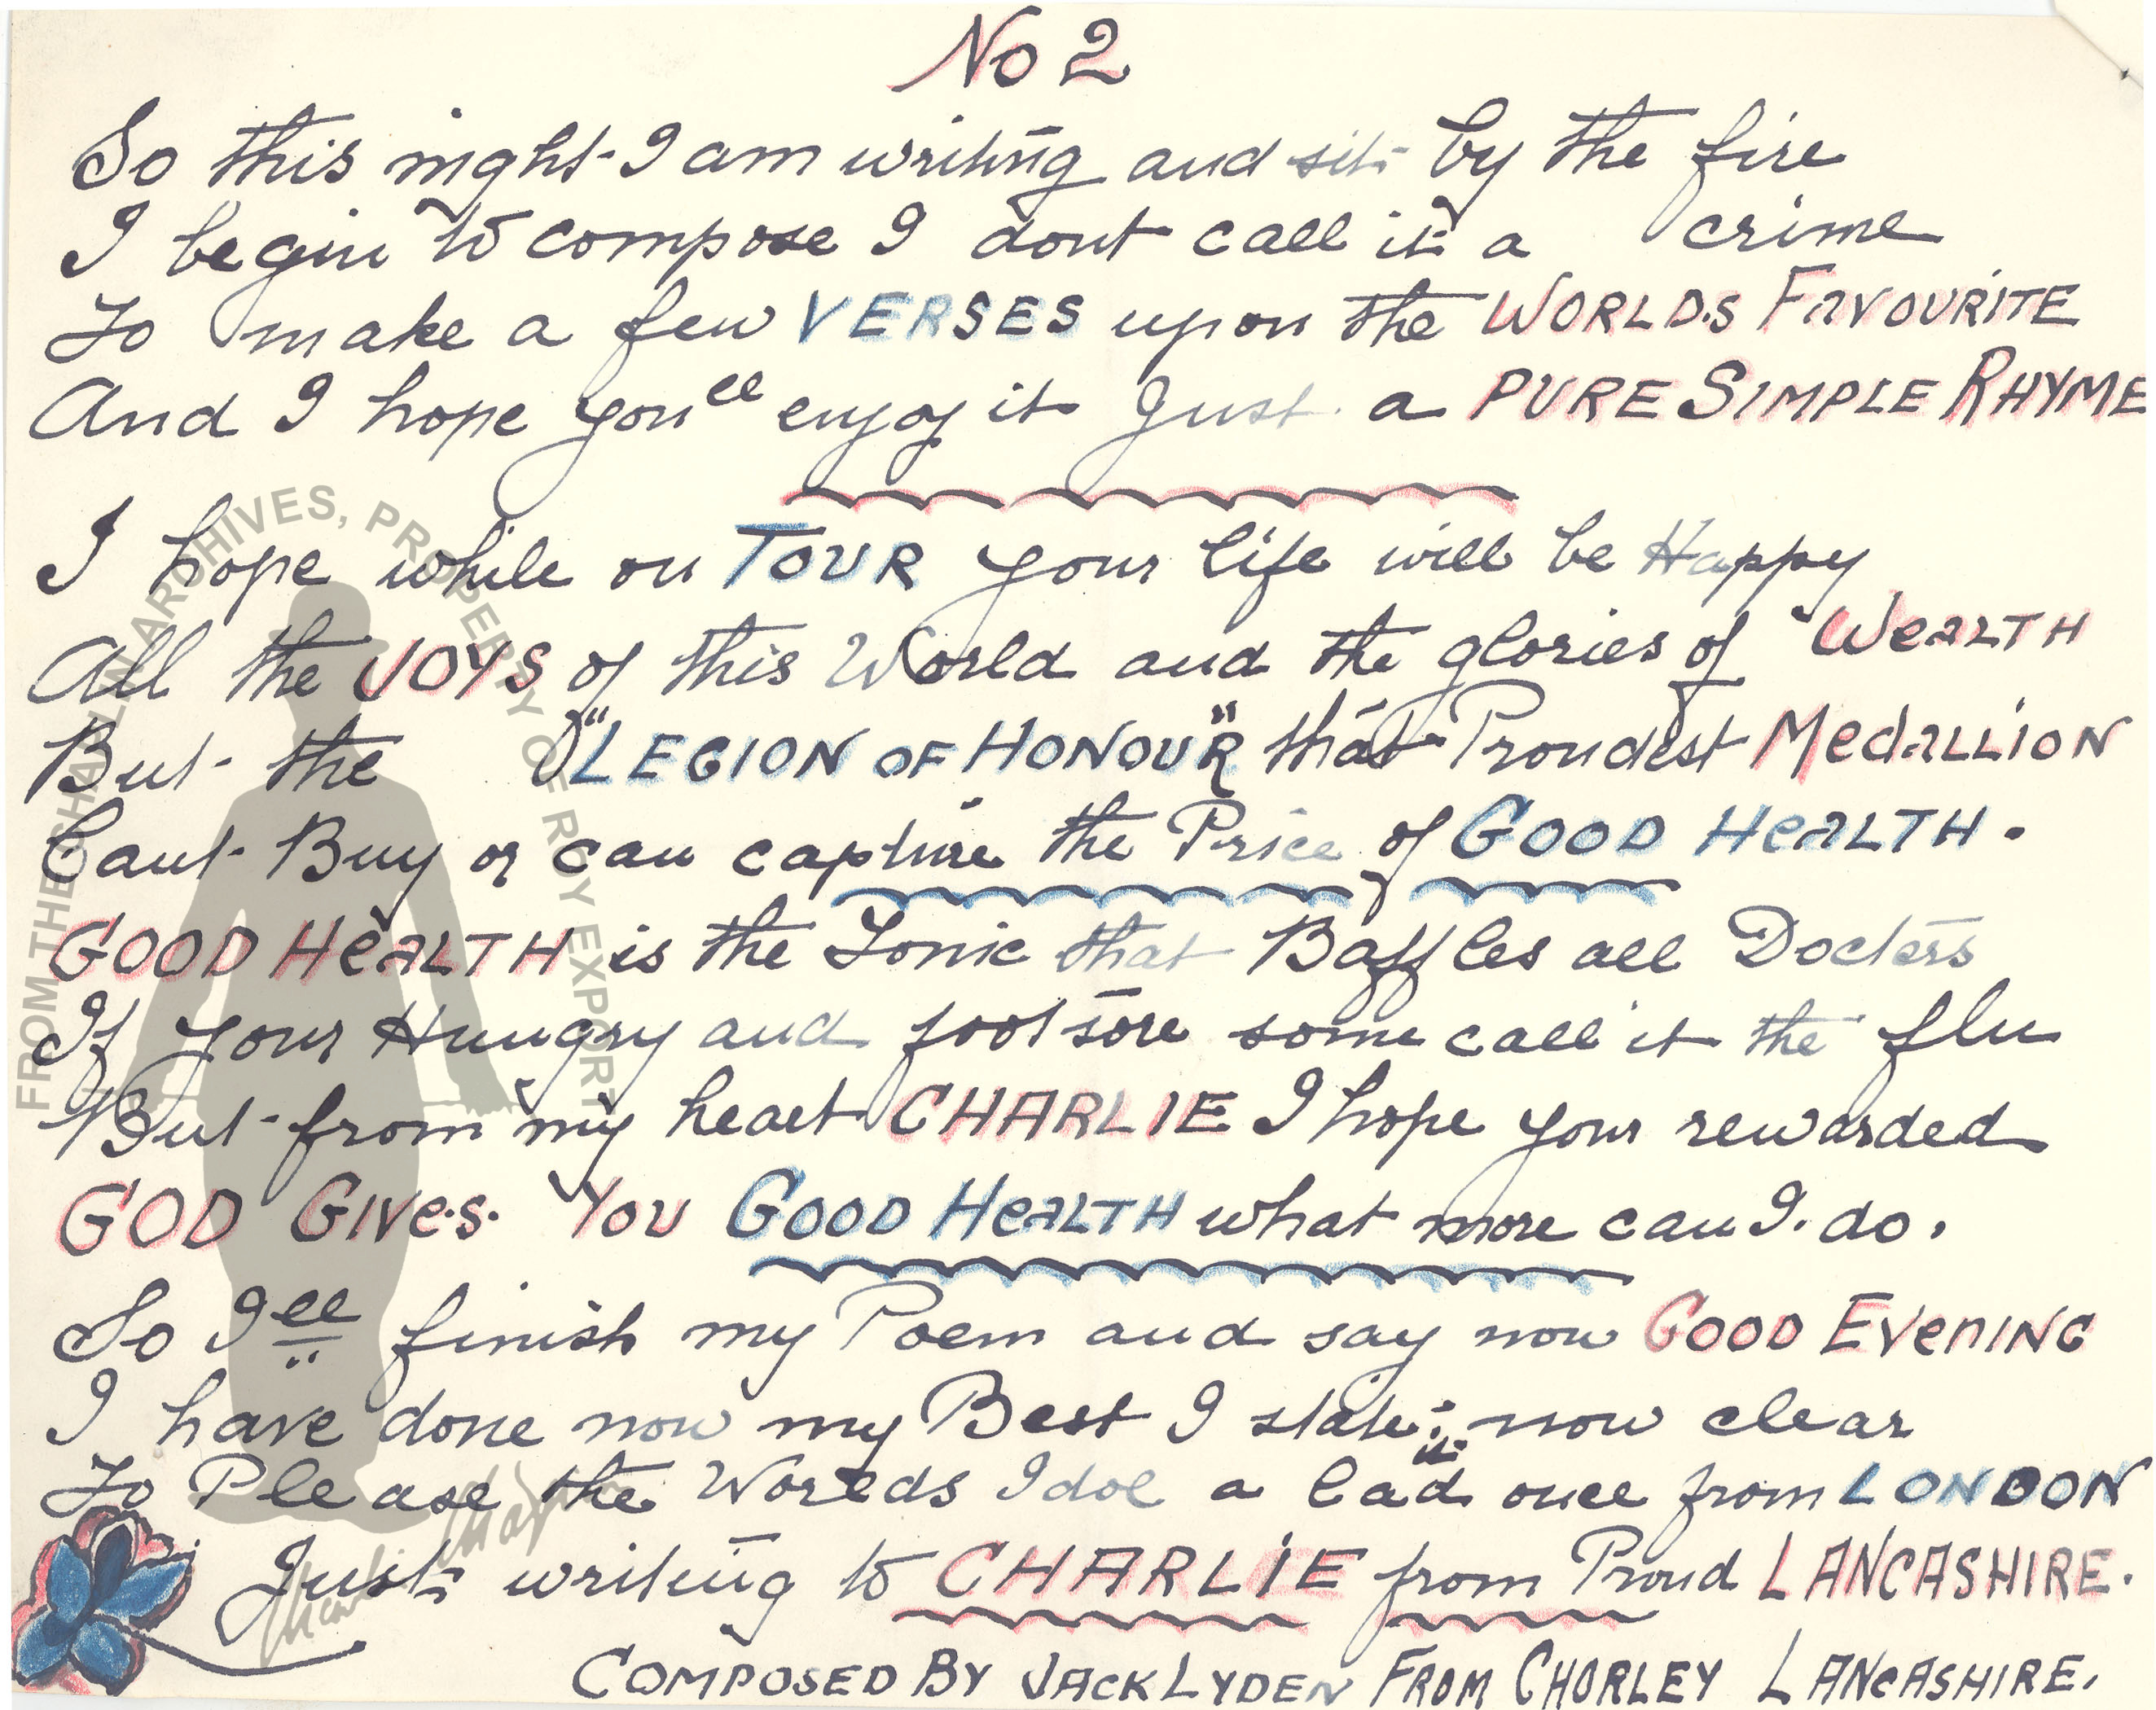 No 2
So this night I am writing and sit by the fire
I begin to compose I dont call it a crime
To make a few VERSES upon the WORLD.S FAVOURITE
And I hope you'll enjoy it Just a PURE SIMPLE RHYME
I hope while on TOUR your life will be Happy
All the JOYS of this World and the glories of WeALTH
But the "LEGION OF HONOUR" that Proudest MedALLION
Cant Buy or can capture the Price of GOOD HeALTH.
GOOD HeALTH is the Tonic that Baffles all Doctors
If your Hungry and footsore some call it the flu
But from my heart CHARLIE I hope your rewarded
GOD GIVe.S. YOU GOOD HeALTH what more can I. do.
So Ill finish my Poem and say now GOOD EVeNING
I have done now my Best I state it now clear
To Please the Worlds Idol a lad once from LONDON
Just writing to CHARLIE from Proud LANCASHIRE.
COMPOSED BY JACK LYDEN FROM CHORLEY LANCASHIRE.
FROM THE CHAPLIN ARCHIVES, PROPERTY OF ROY EXPORT
Charlie Chaplin